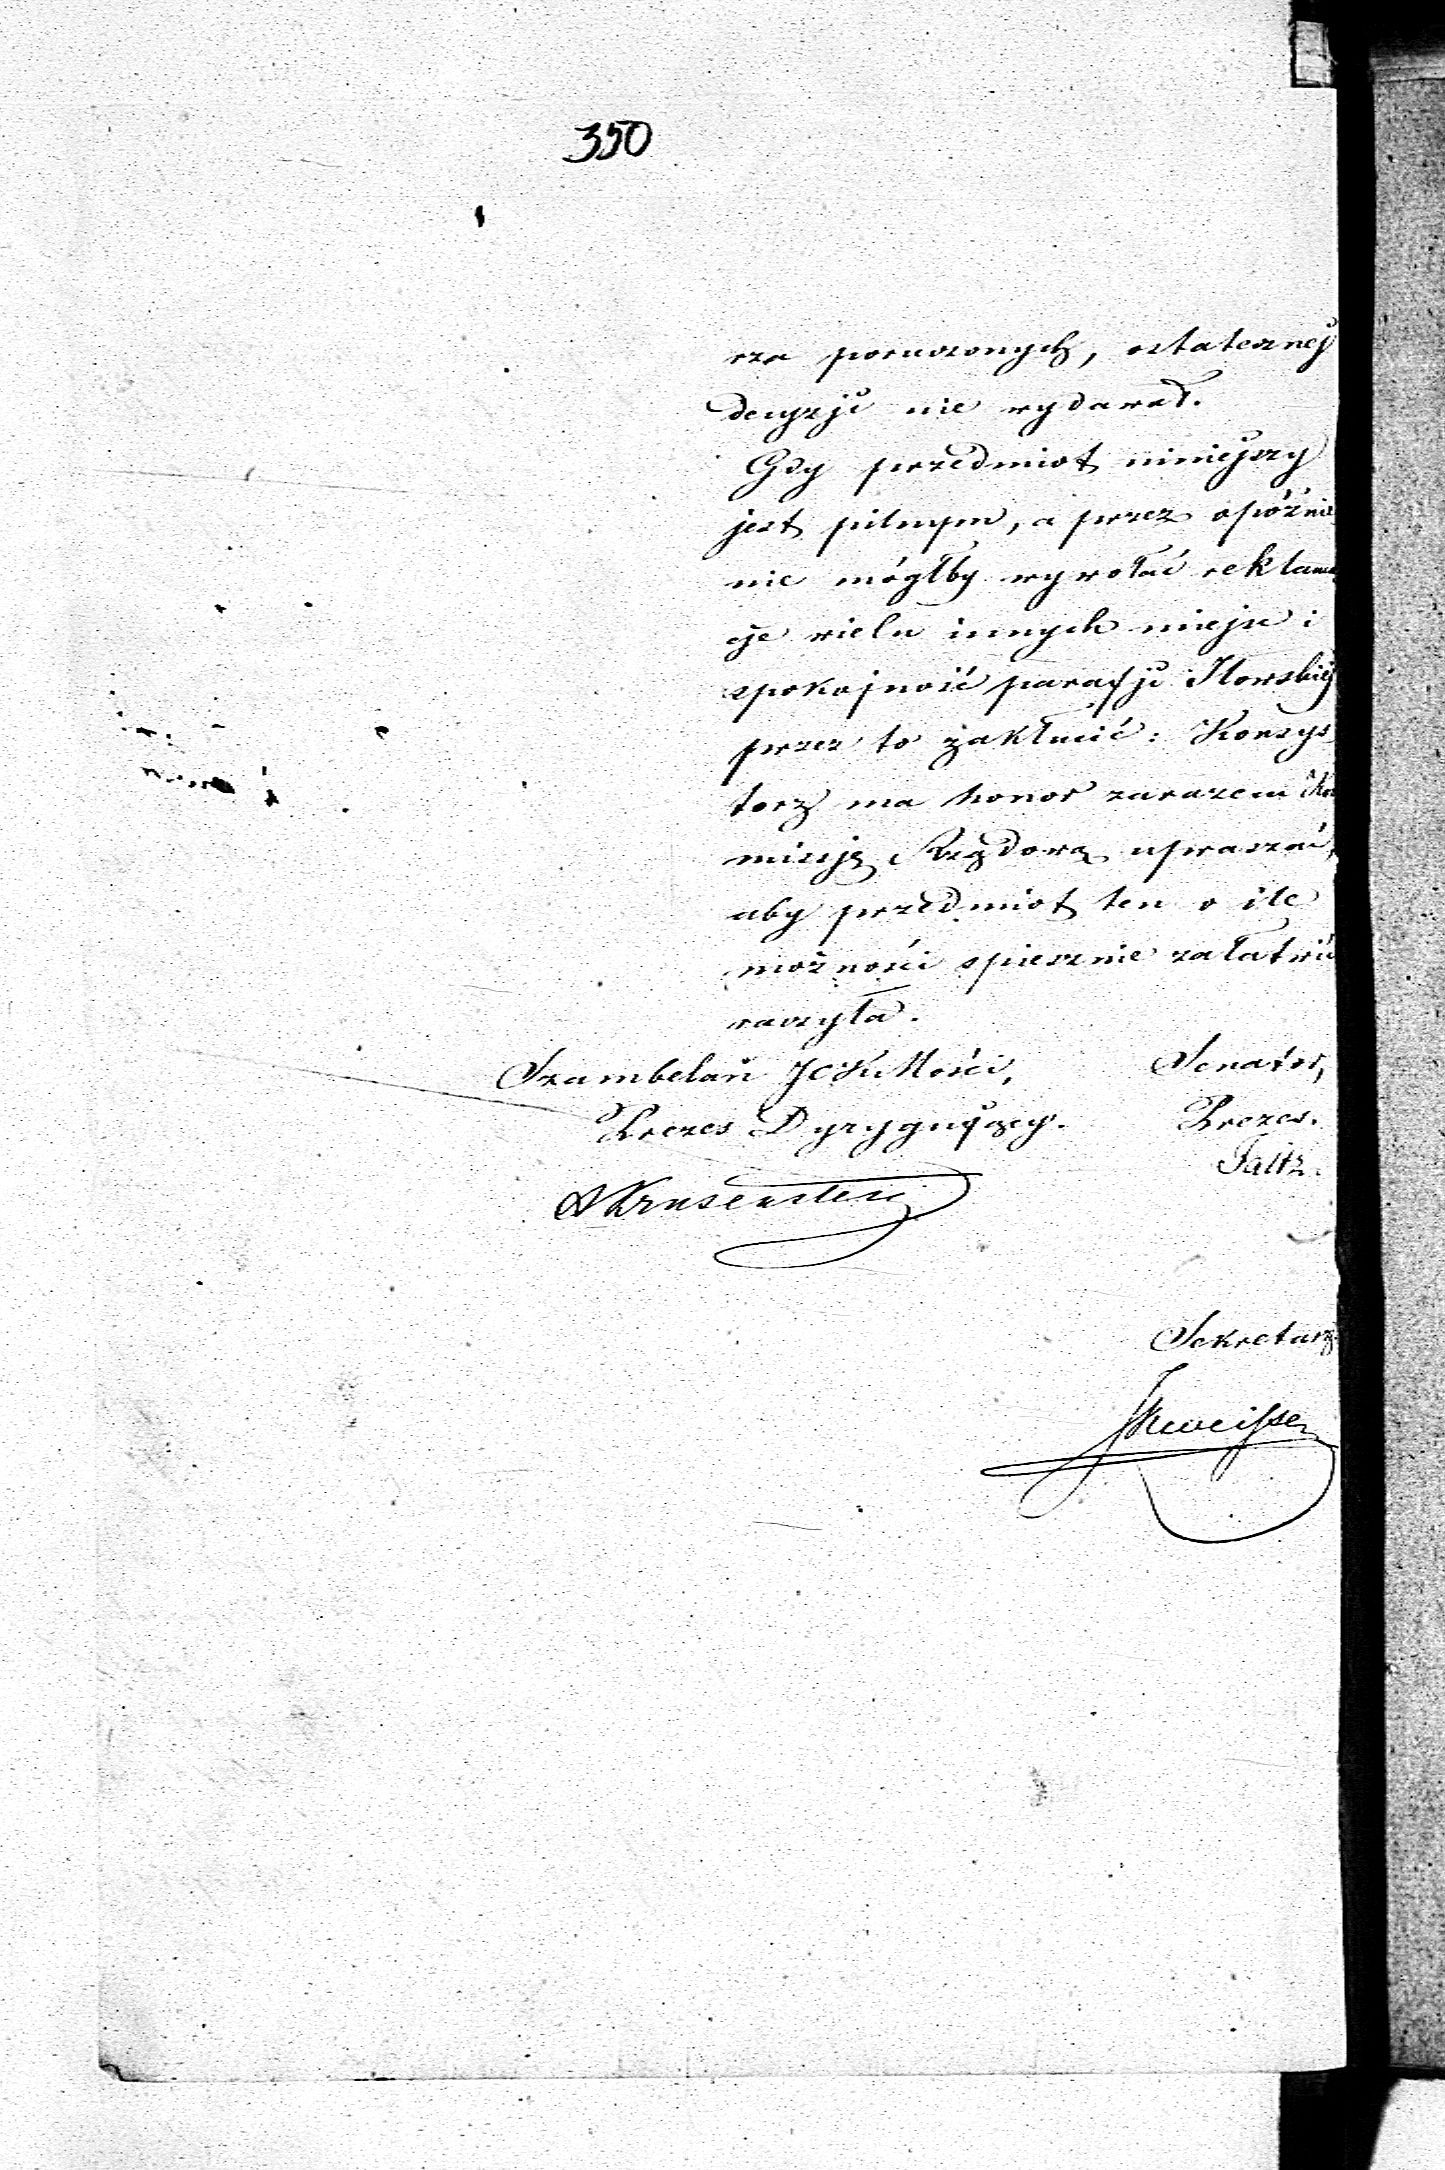 350
rza poruszonych, ostatecznej
decyzji nie wydawał.
Gdy przedmiot niniejszy
jest pilnym, a przez opóźnie
nie mógłby wywołać reklama
cje wielu innych miejsc i
spokojność parafji Iłowskiej
przez to zakłucić: Konsys
torz ma honor zarazem Ko
misję Rządową upraszać,
aby przedmiot ten o ile
możności spiesznie załatwić
raczyła.
Szambelan JCKMości, Senator,
Prezes Dyrygujący. Prezes.
Faltz.
Krusenstern
Sekretarz